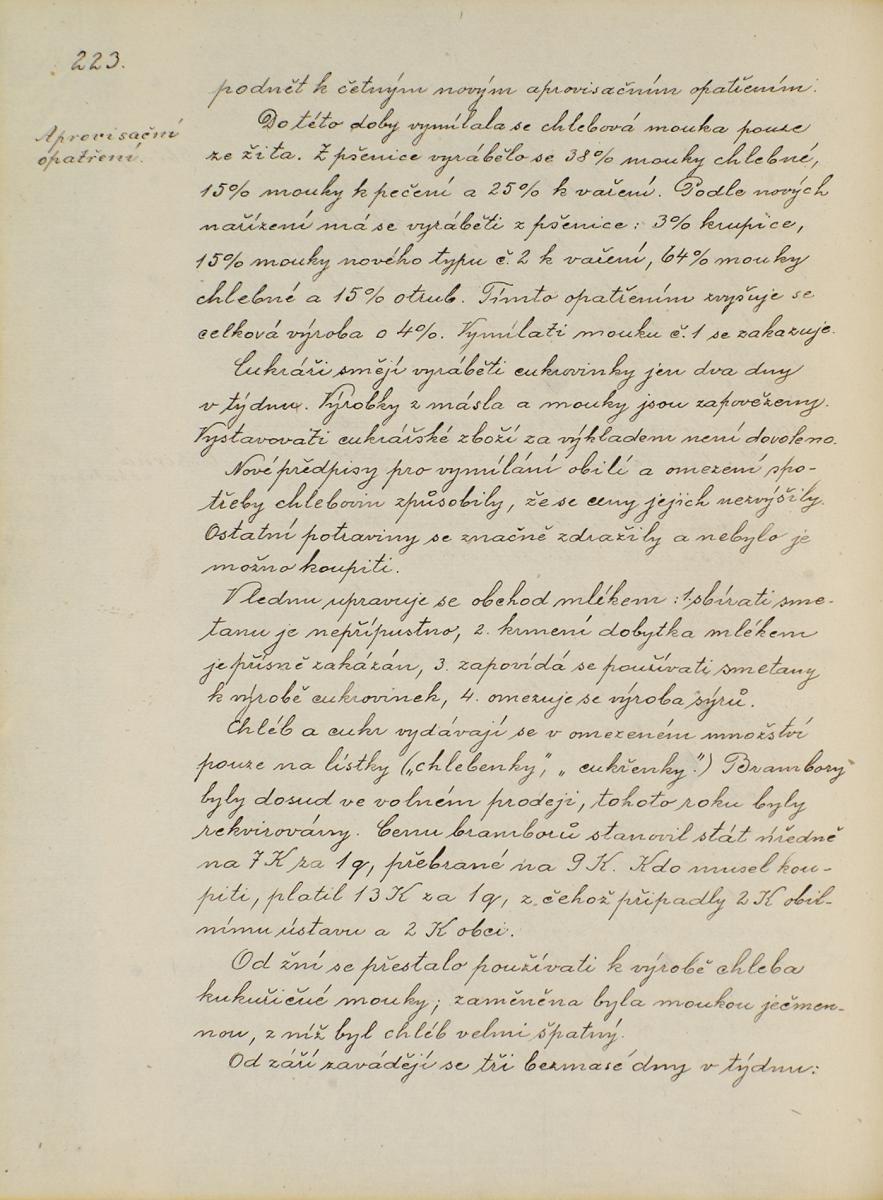 223.
podnět k četným novým aprovisačním opatřením.
Aprovisační
opatření.
Do této doby vymílala se chlebová mouka pouze
ze žita. Z pšenice vyrábělo se 38% mouky chlebné,
15% mouky k pečení a 25% k vaření. Podle nových
nařízení má se vyráběti z pšenice: 3% krupice,
15% mouky nového typu č. 2 k vaření, 64% mouky
chlebné a 15% otrub. Tímto opatřením zvyšuje se
celková výroba o 4%. Vymílati mouku č. 1 se zakazuje.
Cukráři smějí vyráběti cukrovinky jen dva dny
v týdnu. Výrobky z másla a mouky jsou zapovězeny.
Vystavovati cukrářské zboží za výkladem není dovoleno.
Nové předpisy pro vymílání obilí a omezení spo-
třeby chlebovin způsobily, že se ceny jejich nezvýšily.
Ostatní potraviny se značně zdražily a nebylo je
možno koupiti.
V lednu upravuje se obchod mlékem: 1. sbírati sme-
tanu je nepřípustno, 2. krmení dobytka mlékem
je přísně zakázán, 3. zapovídá se používati smetany
k výrobě cukrovinek, 4. omezuje se výroba sýrů.
Chléb a cukr vydávají se v omezeném množství
pouze na lístky („chlebenky", „cukřenky".) Brambory
byly dosud ve volném prodeji, tohoto roku byly
rekvirovány. Cenu bramborů stanovil stát úředně
na 7 K za 1 q, přebrané na 9 K. Kdo musel kou-
piti, platil 13 K za 1 q, z čehož připadly 2 K obil-
nímu ústavu a 2 K obci.
Od žní se přestalo používati k výrobě chleba
kukuřičné mouky; zaměněna byla moukou ječmen-
nou, z níž byl chléb velmi špatný.
Od září zavádějí se tři bezmasé dny v týdnu: